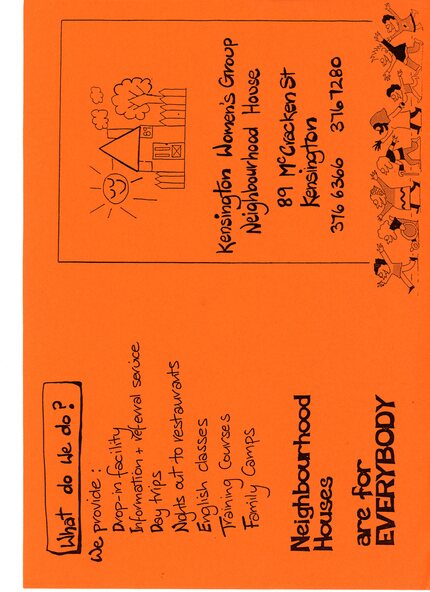 What do we do?
We provide:
Drop-in facility
Information + referral service
Day trips
Nights out to restaurants
English classes
Training Courses
Family Camps
Neighbourhood
Houses
are for
EVERYBODY
89
Kensington Women's Group
Neighbourhood House
89 McCracken St
Kensington
376 6366 376 7280